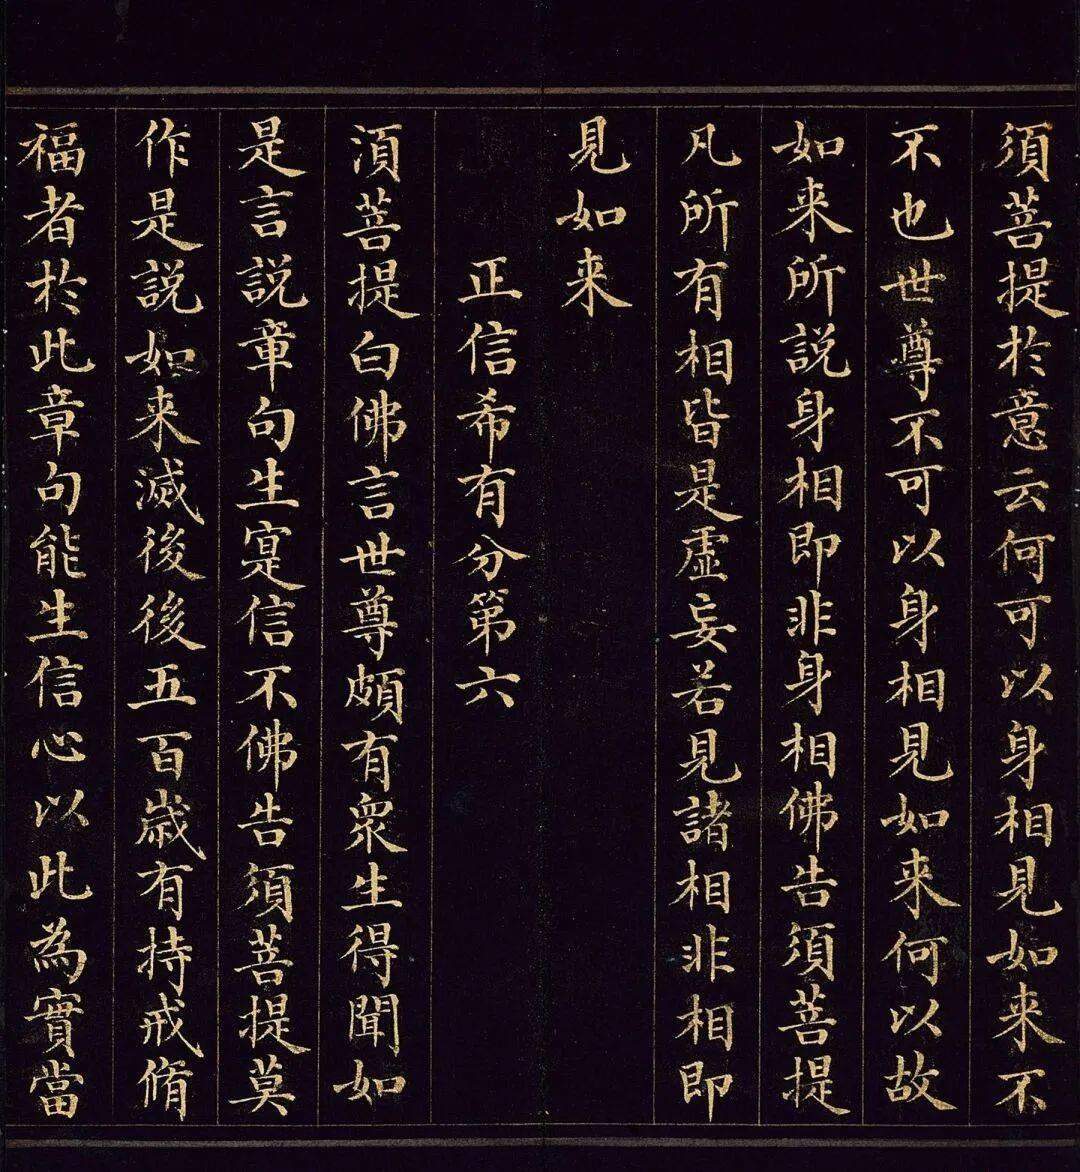 須菩提於意云何可以身相見如来不
不也世尊不可以身相見如来何以故
如来所說身相即非身相佛告須菩提
凡所有相皆是虛妄若見諸相非相即
見如来
正信希有分第六
湏菩提白佛言世尊頗有衆生得聞如
是言說章句生寔信不佛告須菩提莫
作是說如来滅後後五百歲有持戒脩
福者於此章句能生信心以此為實當